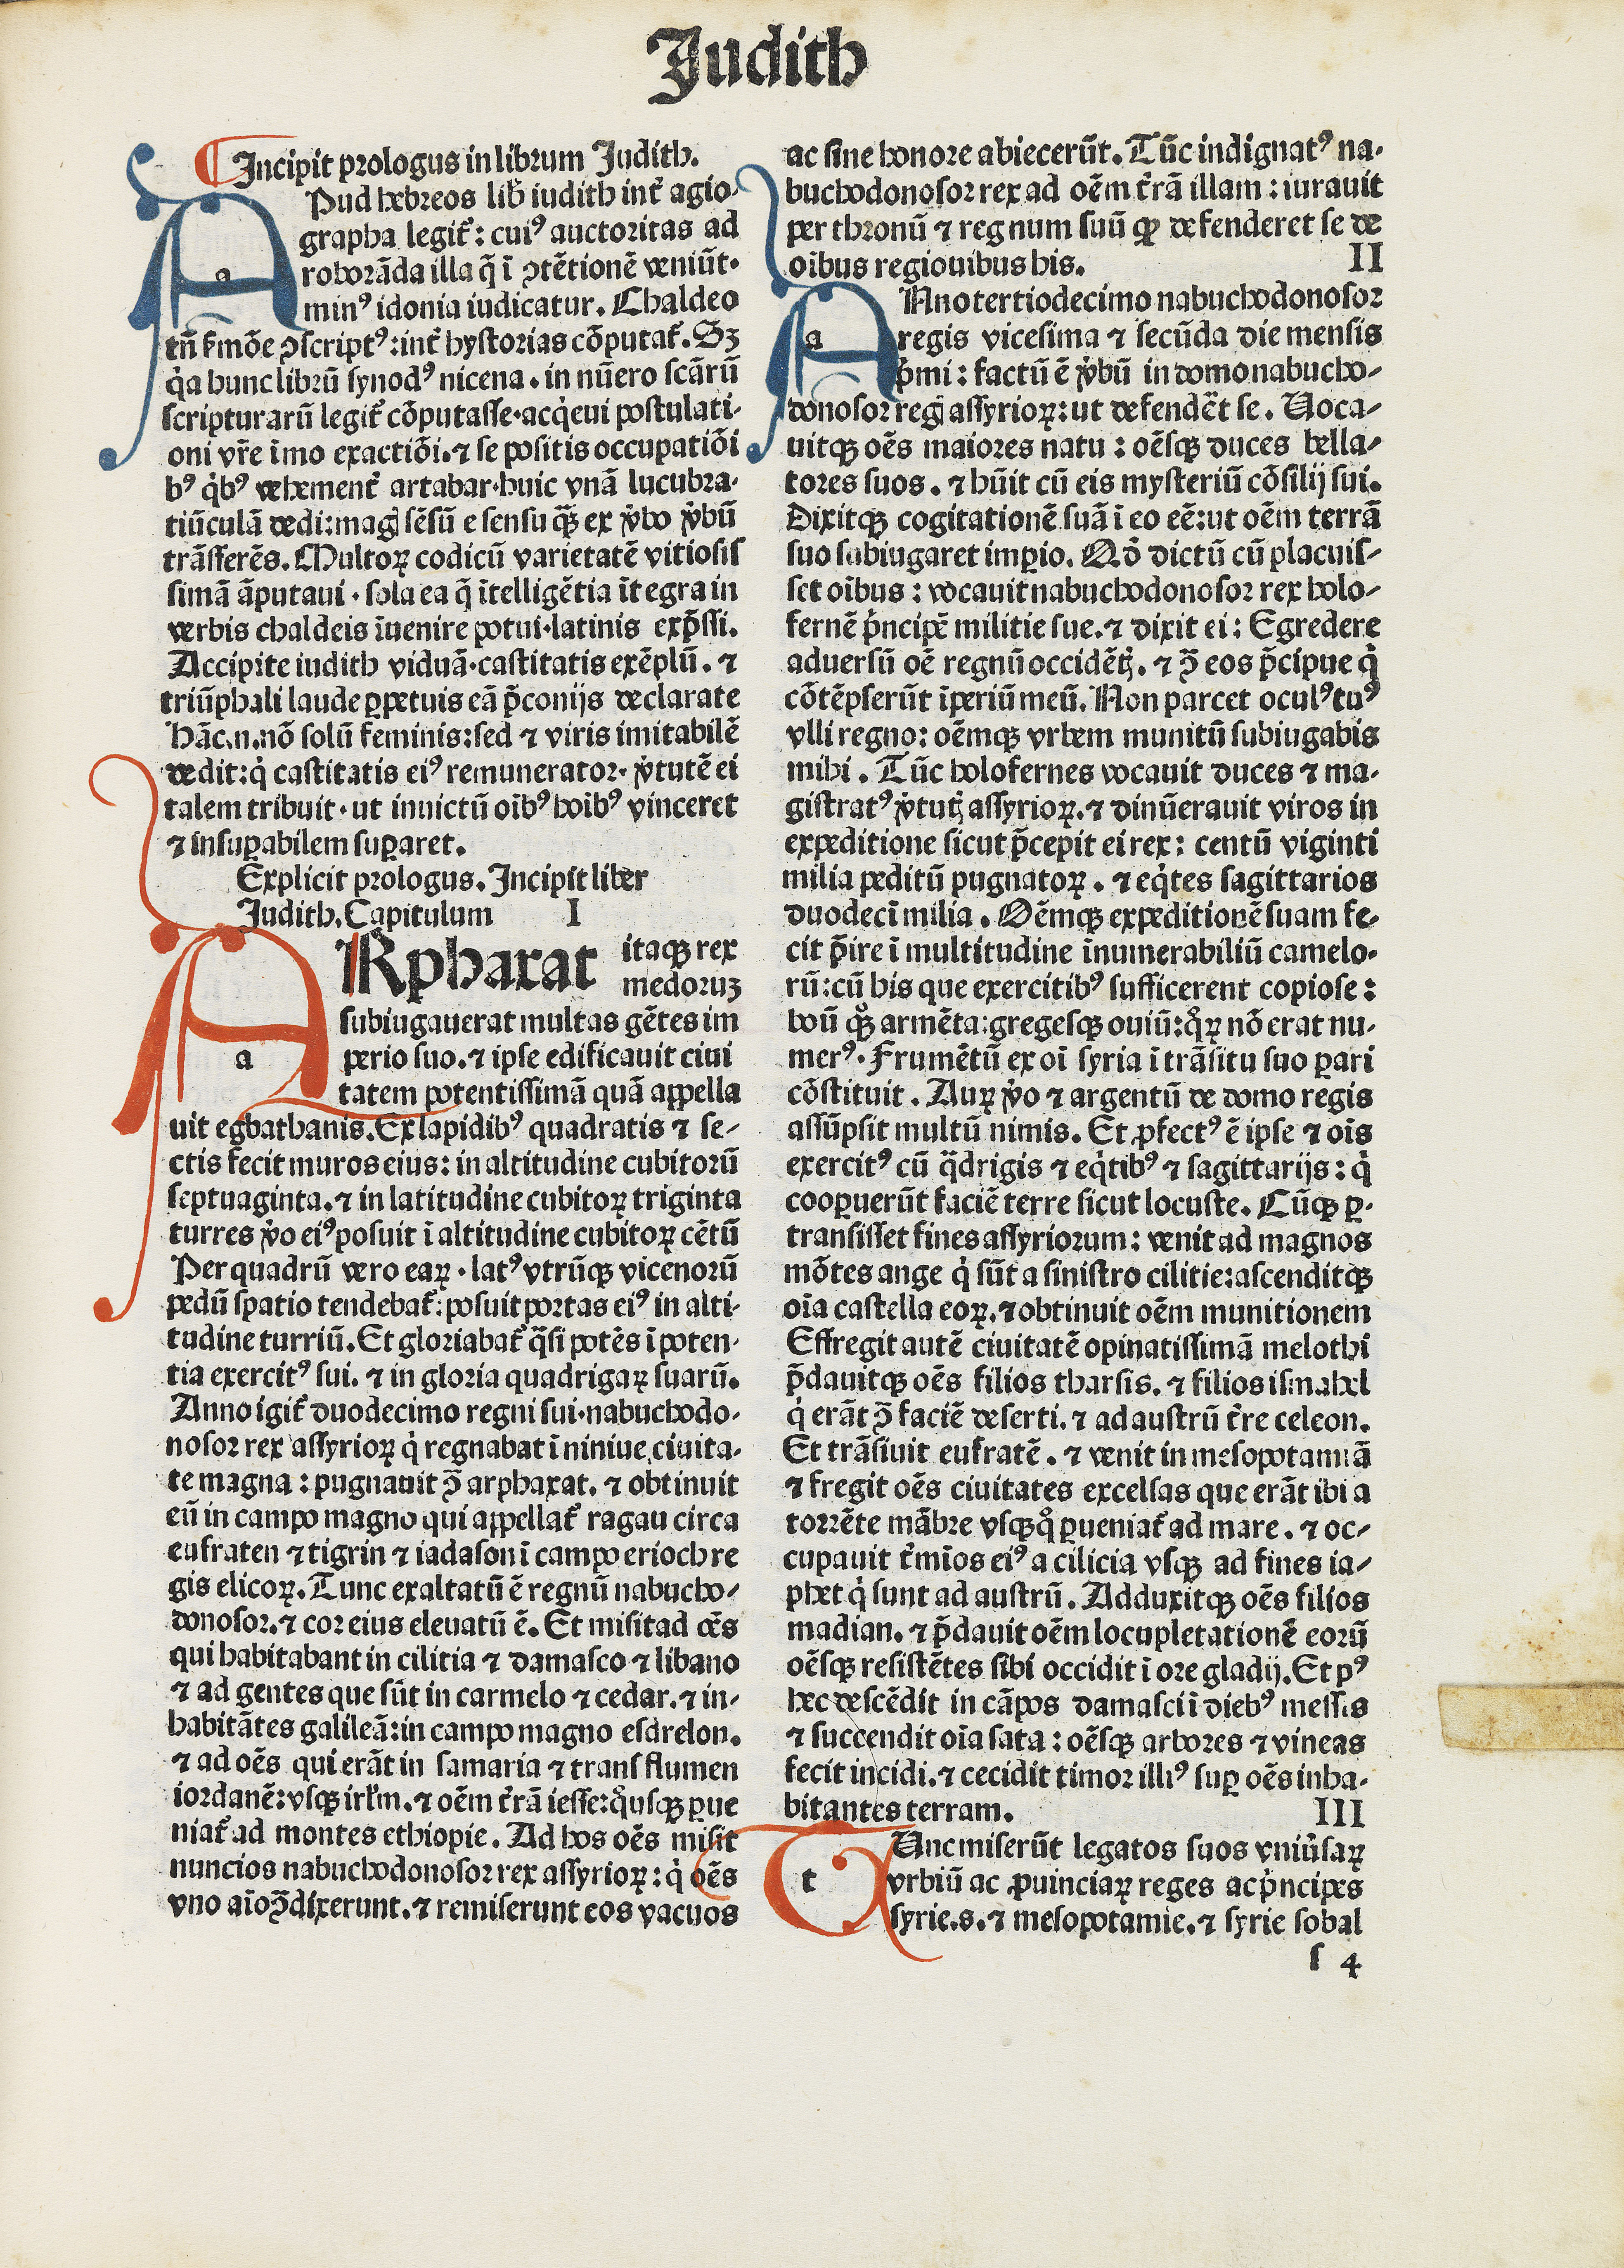 Judith
Incipit prologus in librum Judith.
APud hebreos lib̃ iudith int̃ agio-
grapha legit᷑: cuiꝰ auctoritas ad
roborãda illa q̃ ĩ ꝯtẽtionẽ veniũt·
minꝰ idonia iudicatur. Chaldeo
tñ f̃mõe ꝯscriptꝰ:int̃ hystorias cõputat᷑. Sꝫ
q̇a hunc librũ synodꝰ nicena. in nũero scãrũ
scripturarũ legit᷑ cõputasse·acq̇eui postulati-
oni vr̃e ĩmo exactiõi.⁊ se positis occupatiõi
bꝰ q̇bꝰ vehement̃ artabar·huic vnã lucubra-
tiũculã dedi:mag̃ sẽsũ e sensu q̃ꝫ ex v̾bo v̾bũ
trãsferẽs. Multoꝝ codicũ varietatẽ vitiosis
simã ãputaui·sola ea q̃ ĩtelligẽtia ĩtegra in
verbis chaldeis ĩuenire potui·latinis exp̃ssi.
Accipite iudith viduã·castitatis exẽplũ.⁊
triũphali laude ꝑpetuis eã p̃conijs declarate
hãc.n.nõ solũ feminis:sed ⁊ viris imitabilẽ
dedit:q̇ castitatis eiꝰ remunerator·v̾tutẽ ei
talem tribuit·ut inuictũ oĩbꝰ hoĩbꝰ vinceret
⁊ insuꝑabilem suꝑaret.
Explicit prologus. Incipit liber
Judith. Capitulum I
ARphaxat itaqꝫ rex
medoruꝫ
subiugauerat multas gẽtes im
a perio suo.⁊ ipse edificauit ciui
tatem potentissimã quã appella
uit egbathanis. Ex lapidibꝰ quadratis ⁊ se-
ctis fecit muros eius: in altitudine cubitorũ
septuaginta.⁊ in latitudine cubitoꝝ triginta
turres v̾o eiꝰ posuit ĩ altitudine cubitoꝝ cẽtũ
Per quadrũ vero eaꝝ·latꝰ vtrũqꝫ vicenorũ
pedũ spatio tendebat᷑: posuit portas eiꝰ in alti-
tudine turriũ. Et gloriabat᷑ q̃si potẽs ĩ poten-
tia exercitꝰ sui.⁊ in gloria quadrigaꝝ suarũ.
Anno igit᷑ duodecimo regni sui·nabuchodo-
nosor rex assyrioꝝ q̇ regnabat ĩ niniue ciuita-
te magna: pugnauit ꝯ̃ arphaxat.⁊ obtinuit
eũ in campo magno qui appellat᷑ ragau circa
eufraten ⁊ tigrin ⁊ iadason ĩ campo erioch re
gis elicoꝝ. Tunc exaltatũ ẽ regnũ nabucho-
donosor.⁊ cor eius eleuatũ ẽ. Et misit ad oẽs
qui habitabant in cilitia ⁊ damasco ⁊ libano
⁊ ad gentes que sũt in carmelo ⁊ cedar.⁊ in-
habitãtes galileã:in campo magno esdrelon.
⁊ ad oẽs qui erãt in samaria ⁊ trans flumen
iordanẽ:vsqꝫ irl̃m.⁊ oẽm t̃rã iesse:q̊usqꝫ ꝑue
niat᷑ ad montes ethiopie. Ad hos oẽs misit
nuncios nabuchodonosor rex assyrioꝝ: q̇ oẽs
vno aĩo ꝯ̃dixerunt.⁊ remiserunt eos vacuos
ac sine honore abiecerũt. Tũc indignatꝰ na-
buchodonosor rex ad oẽm t̃rã illam: iurauit
per thronũ ⁊ regnum suũ qꝙ defenderet se de
oĩbus regiouibus his. II
ANno tertiodecimo nabuchodonosor
a regis vicesima ⁊ secũda die mensis
ṗmi: factũ ẽ v̾bũ in domo nabucho-
donosor reg̃ assyrioꝝ:ut defendẽt se. Uoca-
uitqꝫ oẽs maiores natu: oẽsqꝫ duces bella-
tores suos.⁊ hũit cũ eis mysteriũ cõsilij sui.
Dixitqꝫ cogitationẽ suã ĩ eo eẽ:ut oẽm terrã
suo subiugaret imꝑio. Qõ dictũ cũ placuis-
set oĩbus: vocauit nabuchodonosor rex holo-
fernẽ ṗncipẽ militie sue.⁊ dixit ei: Egredere
aduersũ oẽ regnũ occidẽtꝭ.⁊ ꝯ̃ eos p̃cipue q̇
cõtẽpserũt ĩperiũ meũ. Non parcet oculꝰ tuꝰ
vlli regno: oẽmqꝫ vrbem munitũ subiugabis
mihi. Tũc holofernes vocauit duces ⁊ ma-
gistratꝰ v̾tutꝭ assyrioꝝ.⁊ dinũerauit viros in
expeditione sicut p̃cepit ei rex: centũ viginti
milia peditũ pugnatoꝝ.⁊ eq̇tes sagittarios
duodecĩ milia. Oẽmqꝫ expeditionẽ suam fe-
cit p̃ire ĩ multitudine ĩnumerabiliũ camelo-
rũ:cũ his que exercitibꝰ sufficerent copiose:
boũ qꝫ̊ armẽta:gregesqꝫ ouiũ:q̊ꝝ nõ erat nu-
merꝰ. Frumẽtũ ex oĩ syria ĩ trãsitu suo ꝑari
cõstituit. Auꝝ v̾o ⁊ argentũ de domo regis
assũpsit multũ nimis. Et ꝓfectꝰ ẽ ipse ⁊ oĩs
exercitꝰ cũ q̃drigis ⁊ eq̇tibꝰ ⁊ sagittarijs: q̇
cooꝑuerũt faciẽ terre sicut locuste. Cũqꝫ ꝑ-
transisset fines assyriorum: venit ad magnos
mõtes ange q̇ sũt a sinistro cilitie:ascenditqꝫ
oĩa castella eoꝝ.⁊ obtinuit oẽm munitionem
Effregit autẽ ciuitatẽ opinatissimã melothi
p̃dauitqꝫ oẽs filios tharsis.⁊ filios ismahel
q̇ erãt ꝯ̃ faciẽ deserti.⁊ ad austrũ t̃re celeon.
Et trãsiuit eufratẽ.⁊ venit in mesopotamiã
⁊ fregit oẽs ciuitates excelsas que erãt ibi a
torrẽte mãbre vsqꝫq̊ ꝑueniat᷑ ad mare.⁊ oc-
cupauit t̃mĩos eiꝰ a cilicia vsqꝫ ad fines ia-
phet q̇ sunt ad austrũ. Adduxitqꝫ oẽs filios
madian.⁊ p̃dauit oẽm locupletationẽ eorũ
oẽsqꝫ resistẽtes sibi occidit ĩ ore gladij. Et pꝰ
hec descẽdit in cãpos damasci ĩ diebꝰ messis
⁊ succendit oĩa sata: oẽsqꝫ arbores ⁊ vineas
fecit incidi.⁊ cecidit timor illiꝰ suꝑ oẽs inha-
bitantes terram. III
TUnc miserũt legatos suos vniũsaꝝ
t vrbiũ ac ꝓuinciaꝝ reges ac ṗncipes
syrie.s.⁊ mesopotamie.⁊ syrie sobal
s 4